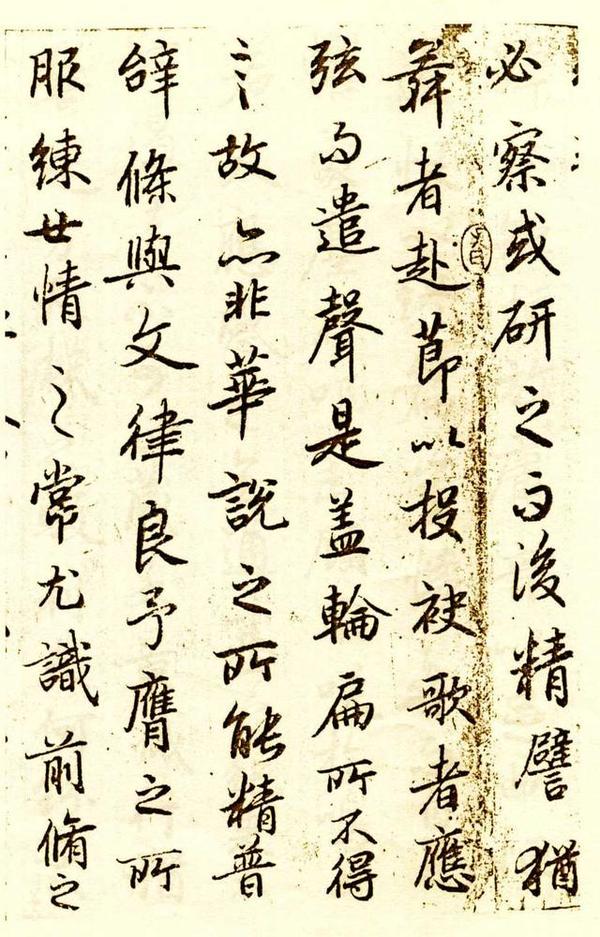 必察或研之而後精譬猶
舞者赴莭以投袂歌者應
弦而遣聲是盖輪扁所不得
言故亦非華說之所能精普
辝條與文律良予膺之所
服練世情之常尤識前脩之